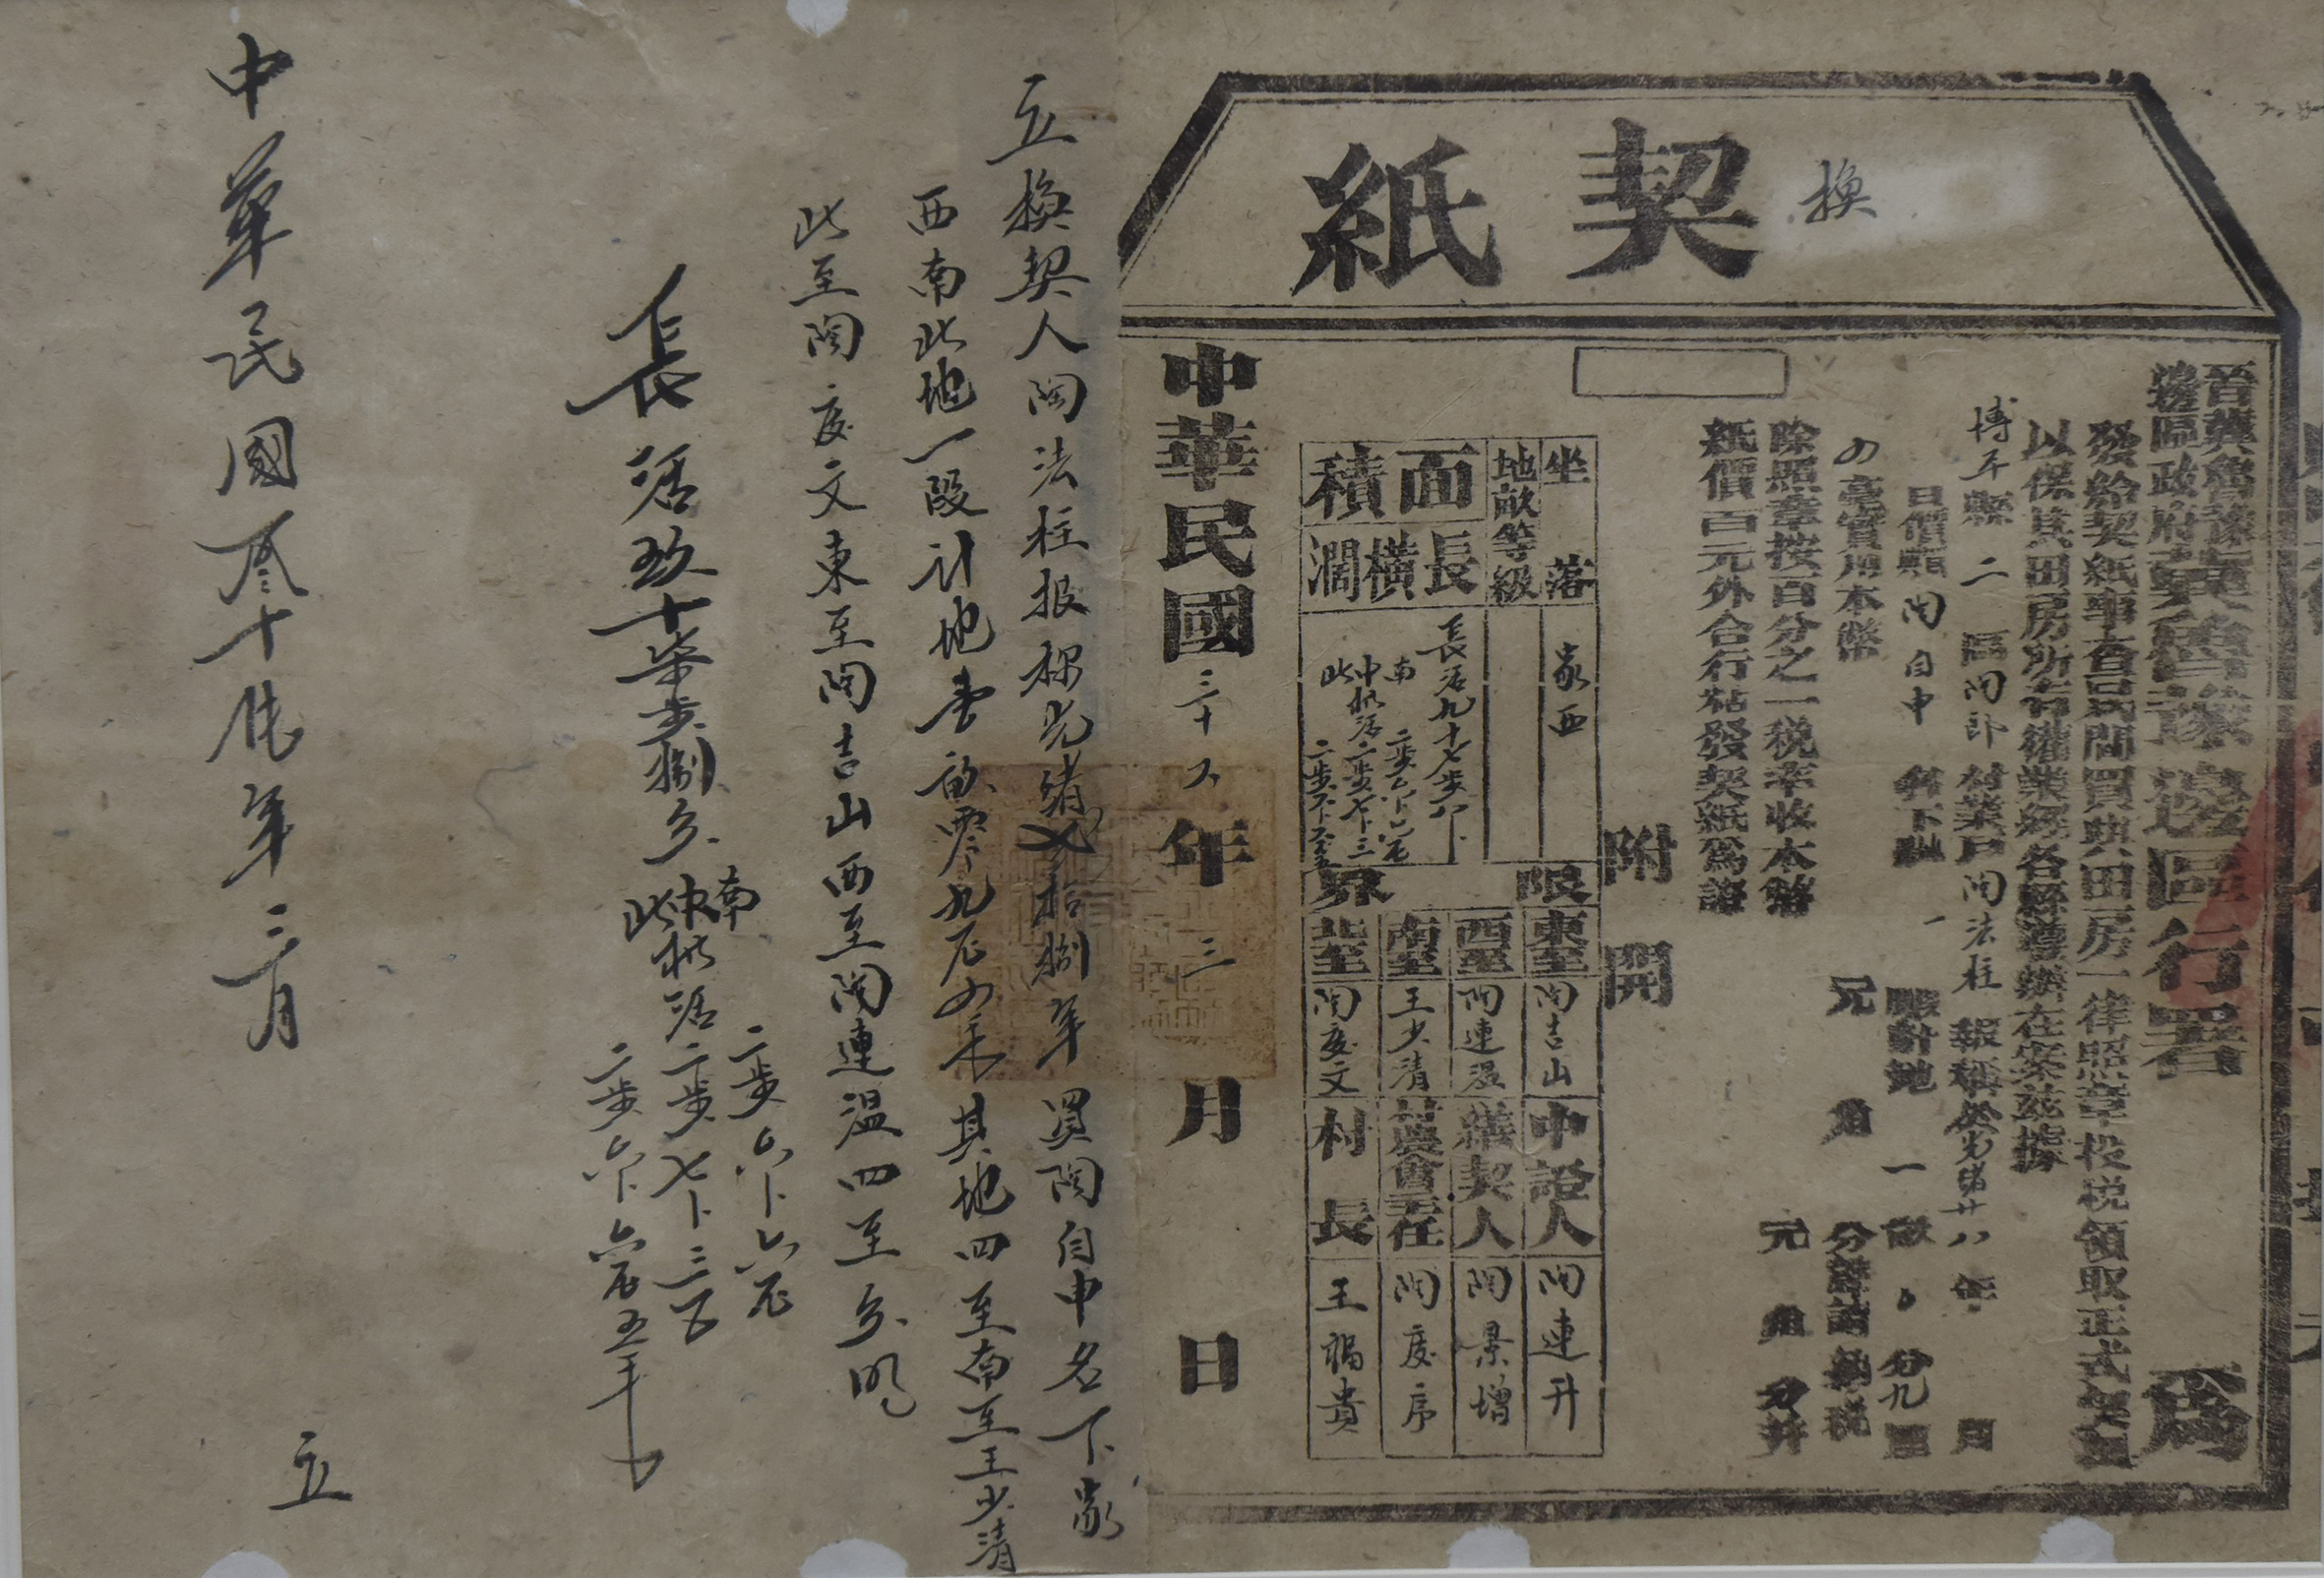 換契紙
晉冀魯豫邊區政府冀魯豫邊區行署為
發給契紙事查民間買典田房一律照章投税領取正式契紙
以保其田房所有權業經各縣遵辦在案茲據
博平縣二區陶郎村業户陶法柱報稱於光緒廿八年 月
日價願陶自申名下 一段計地一畝〇分九厘
四毫實用本幣 元 角 分
除照章按百分之一税率收本幣 元 角 分并
紙價百元外合行粘發契紙為證
附開
坐落 家西
地畝等級
面積
長橫濶
長活九十七步八卜
南 二步六卜六尾
中橫活二步七卜三
北 二步六卜六
限界
東至 陶吉山
西至 陶連溫
南至 王少清
北至 陶慶文
中證人 陶連升
繕契人 陶景增
村農會主任 陶慶序
村長 王福貴
中華民國三十八年三月 日
立換契人陶法柱报称光緒貳拾捌年買陶自申名下家
西南北地一段計地壹畝零九厘四毛其地四至南至王少清
北至陶慶文東至陶吉山西至陶連溫四至分明
長活玖十柒步捌分
南 二步六卜六尾
中橫活二步七卜三
北 二步六卜六
中華民國叁十捌年三月 立